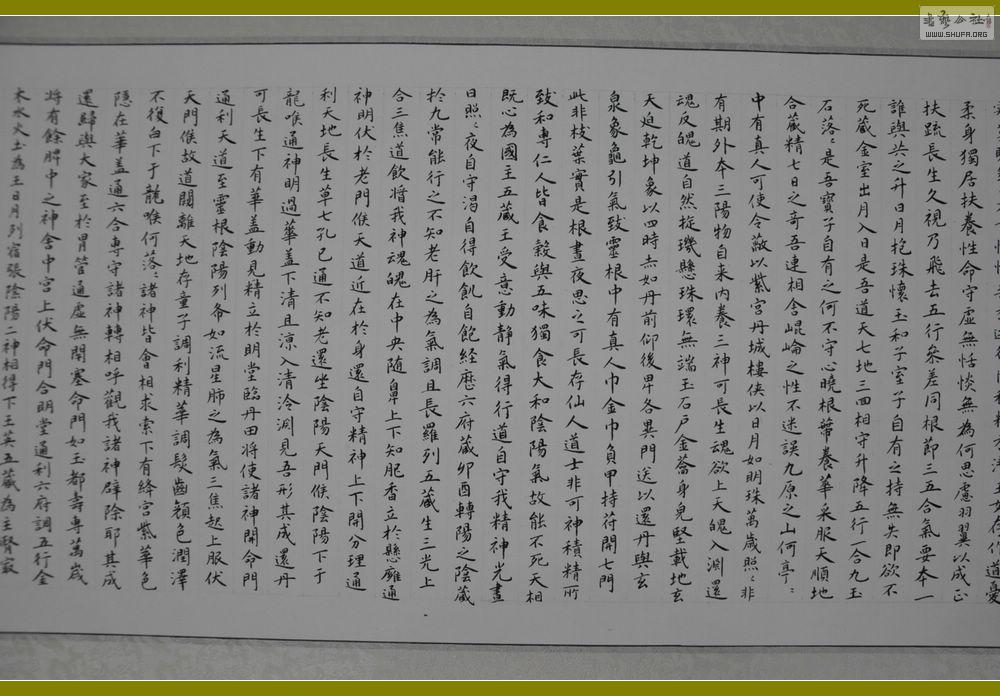 柔身獨居扶養性命守虛無恬惔無為何思慮羽翼以成正
扶疏長生久視乃飛去五行參差同根節三五合氣要本一
誰與共之升日月抱珠懷玉和子室子自有之持無失即欲不
死藏金室出月入日是吾道天七地三回相守升降五行一合九玉
石落落是吾寶子自有之何不守心曉根葉養華采服天順地
合藏精七日之奇吾連相合崐崘之性不迷誤九原之山何亭亭
中有真人可使令蔽以紫宮丹城樓俠以日月如明珠萬歲照照非
有期外本三陽物自來內養三神可長生魂欲上天魄入淵還
魂反魄道自然挺璣懸珠環無端玉石戶金蘥身皃堅載地玄
天迫乾坤象以四時赤如丹前仰後卑各異門送以還丹與玄
泉象龜引氣致靈根中有真人巾金巾負甲持符開七門
此非枝葉實是根晝夜思之可長存仙人道士非可神積精所
致和專仁人皆食穀與五味獨食大和陰陽氣故能不死天相
既心為國主五藏王受意動静氣得行道自守我精神光晝
日照照夜自守渴自得飲飢自飽経歷六府藏卯酉轉陽之陰藏
於九常能行之不知老肝之為氣調且長羅列五藏生三光上
合三焦道飲將我神魂魄在中央随鼻上下知肥香立於懸廱通
神明伏於老門候天道近在於身還自守精神上下開分理通
利天地長生草七孔已通不知老還坐陰陽天門候陰陽下于
龍喉通神明過華蓋下清且涼入清泠淵見吾形其成還丹
可長生下有華蓋動見精立於明堂臨丹田將使諸神開命門
通利天道至靈根陰陽列布如流星肺之為氣三焦起上服伏
天門候故道闚離天地存童子調利精華調髮齒顏色潤澤
不復白下于龍喉何落落諸神皆會相求索下有絳宮紫華色
隱在華蓋通六合専守諸神轉相呼觀我諸神辟除耶其成
還歸與大家至於胃管通虛無閉塞命門如玉都壽専萬歲
將有餘脾中之神舍中宮上伏命門合明堂通利六府調五行金
木水火土為王日月列宿張陰陽二神相得下玉英五藏為主腎最
書藝公社
WWW.SHUFA.ORG